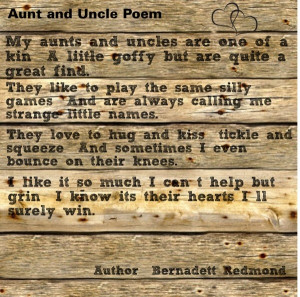 Aunt and Uncle Poem
My aunts and uncles are one of a
kin A little goffy but are quite a
great find.
They like to play the same silly
games And are always calling me
strange little names.
They love to hug and kiss tickle and
squeeze And sometimes I even
bounce on their knees.
I like it so much I can t help but
grin I know its their hearts I ll
surely win.
Author Bernadett Redmond